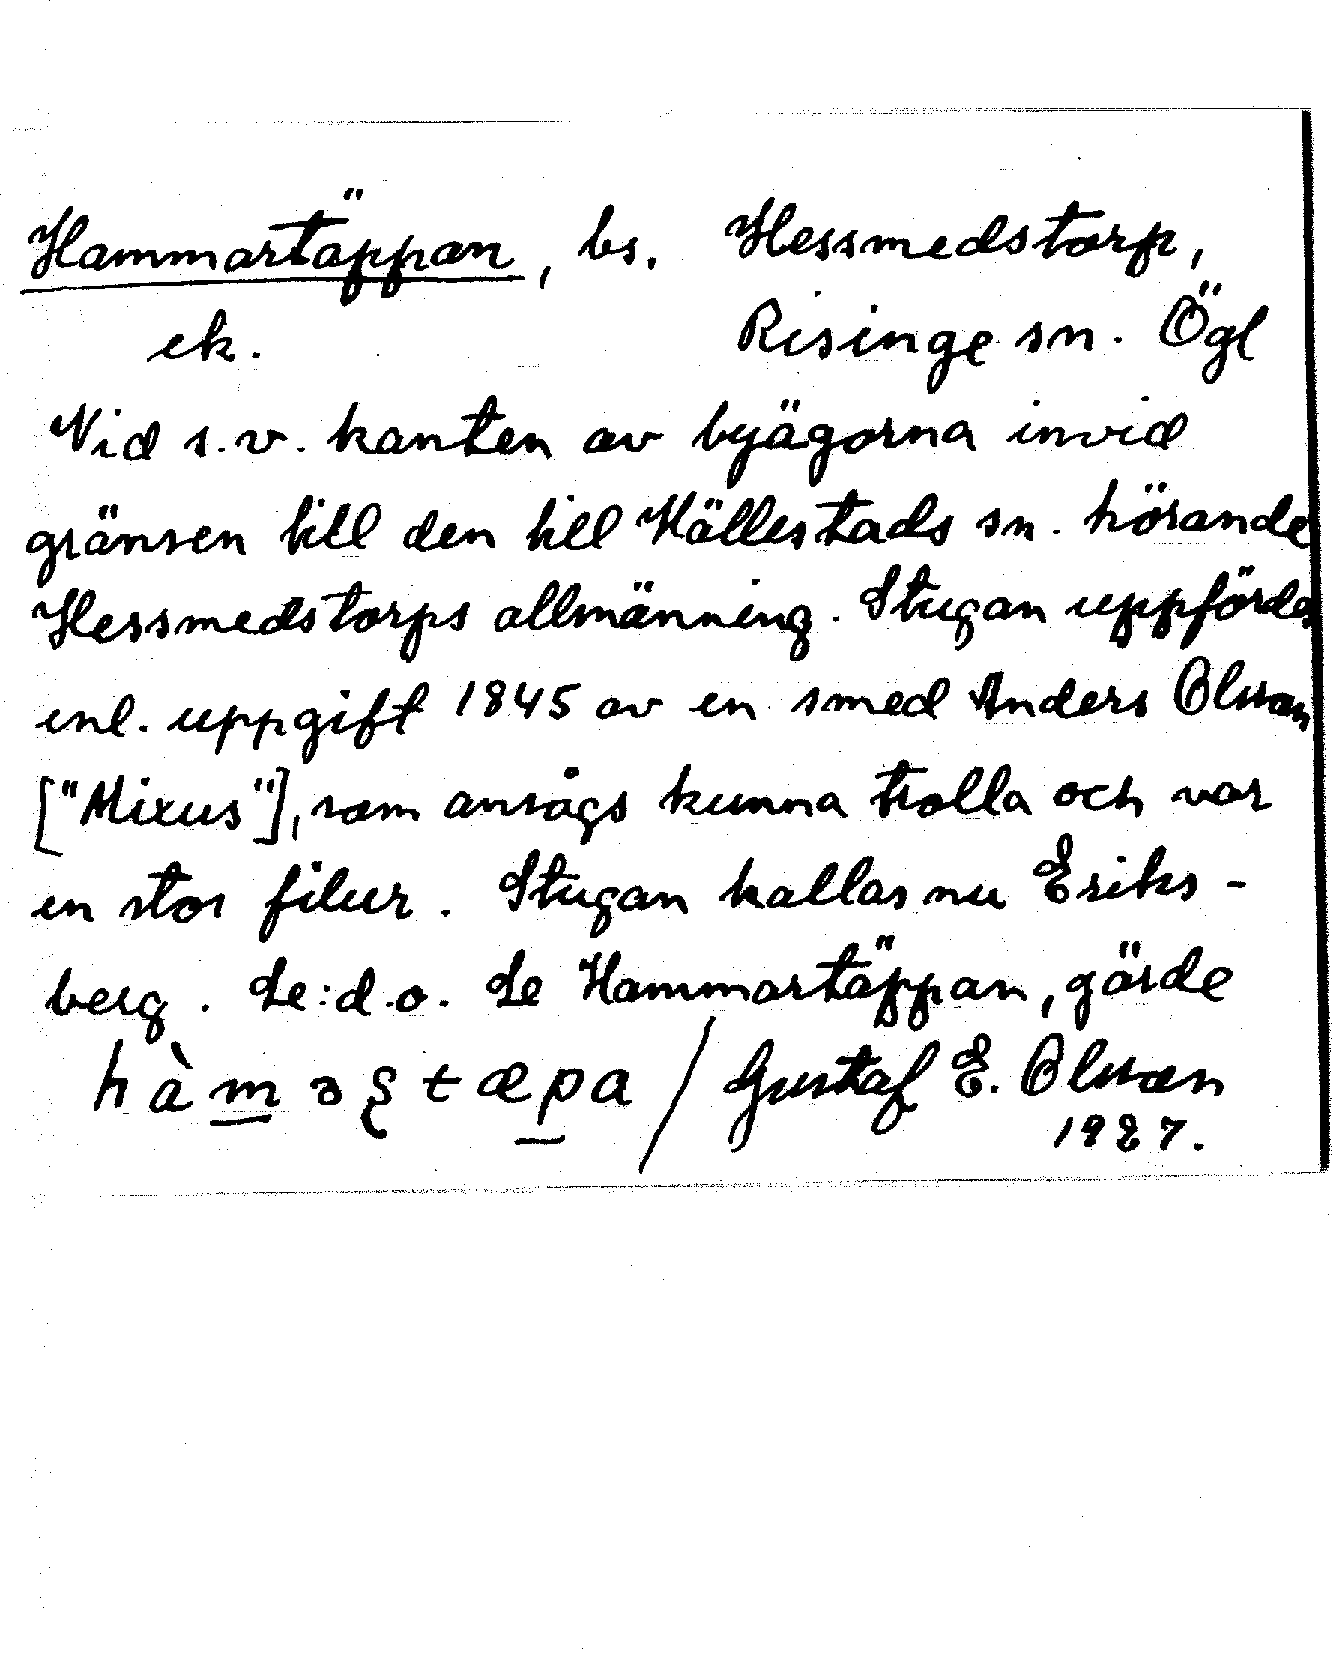 Hammartäppan, bs. Hessmedstorp,
ek. Risinge sn. Ögl
Vid s.v. kanten av byägorna invid
gränsen till den till Hällestads sn. hörande
Hessmedstorps allmänning. Stugan uppfördes
enl. uppgift 1845 av en smed Anders Olsson
["Mixus"], som ansågs kunna trolla och var
en stor filur. Stugan kallas nu Eriks-
berg. Se: d.o. Se Hammartäppan, gärde
hàməʂtæpa / Gustaf E. Olsson
1927.